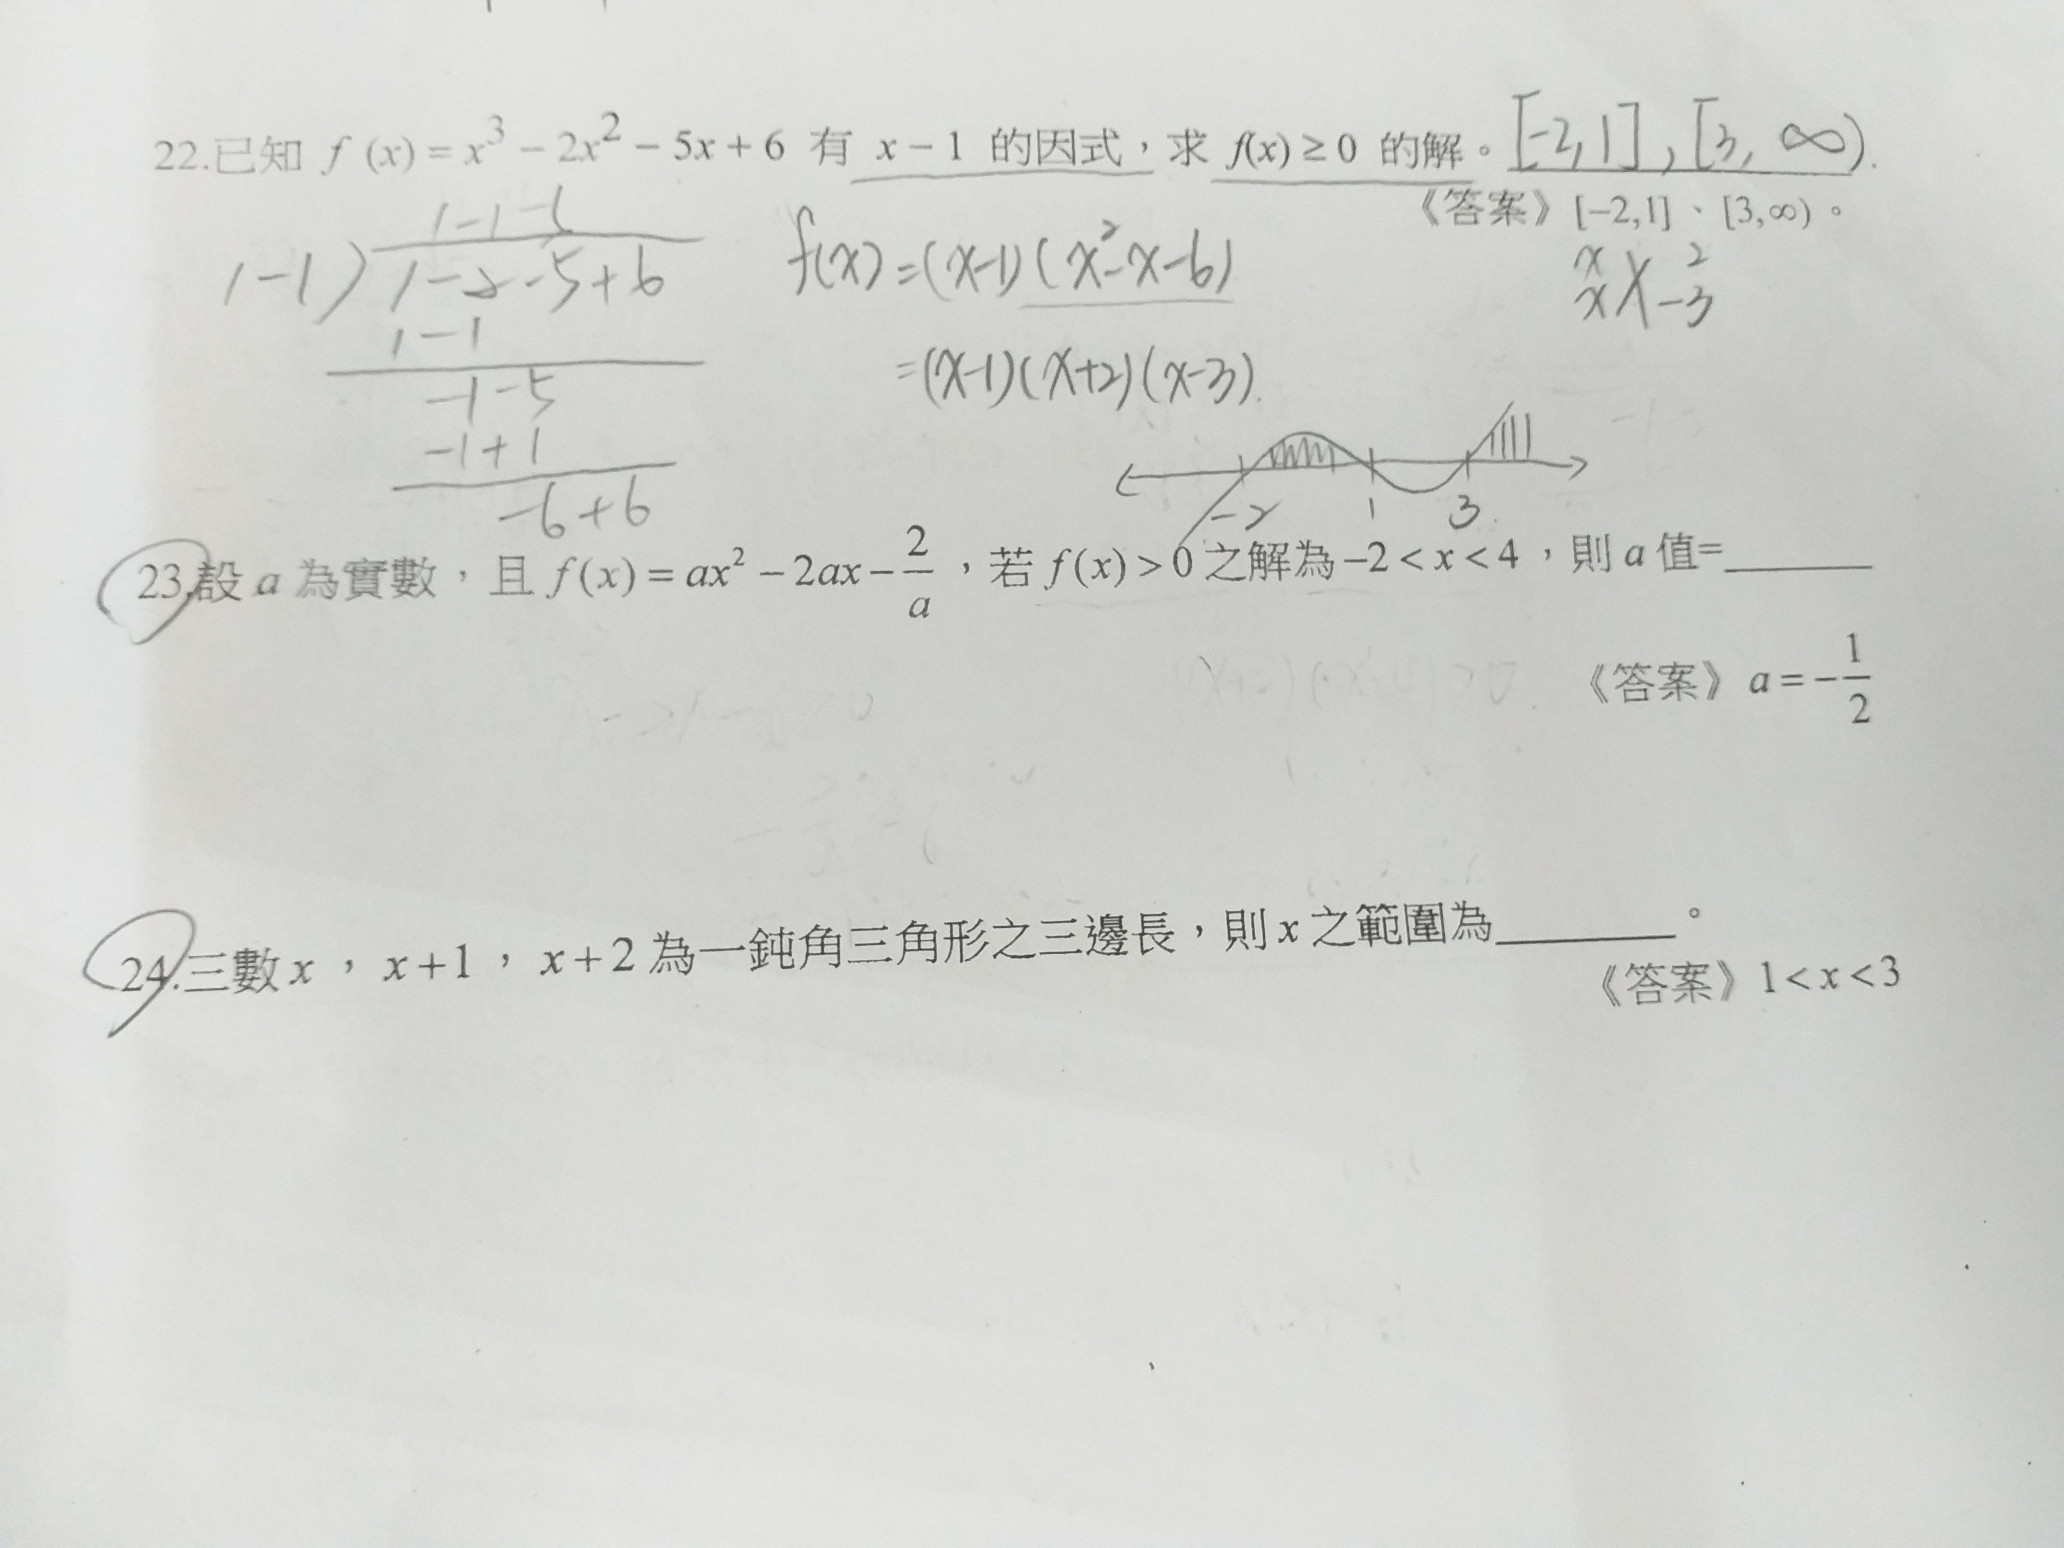 22.已知 f (x) = x³ − 2x² − 5x + 6 有 x − 1 的因式，求 f(x) ≥ 0 的解。[-2,1],[3,∞).
《答案》[−2,1]、[3,∞)。
1-1-6
1-1)1-2-5+6
1-1
-1-5
-1+1
-6+6
f(x)=(x-1)(x²-x-6)
=(x-1)(x+2)(x-3).
x 2
x -3
-2 1 3
23.設 a 為實數，且 f(x) = ax² − 2ax − 2/a，若 f(x) > 0 之解為 −2 < x < 4，則 a 值=______
《答案》a = −1/2
24.三數 x，x+1，x+2 為一鈍角三角形之三邊長，則 x 之範圍為______。
《答案》1 < x < 3